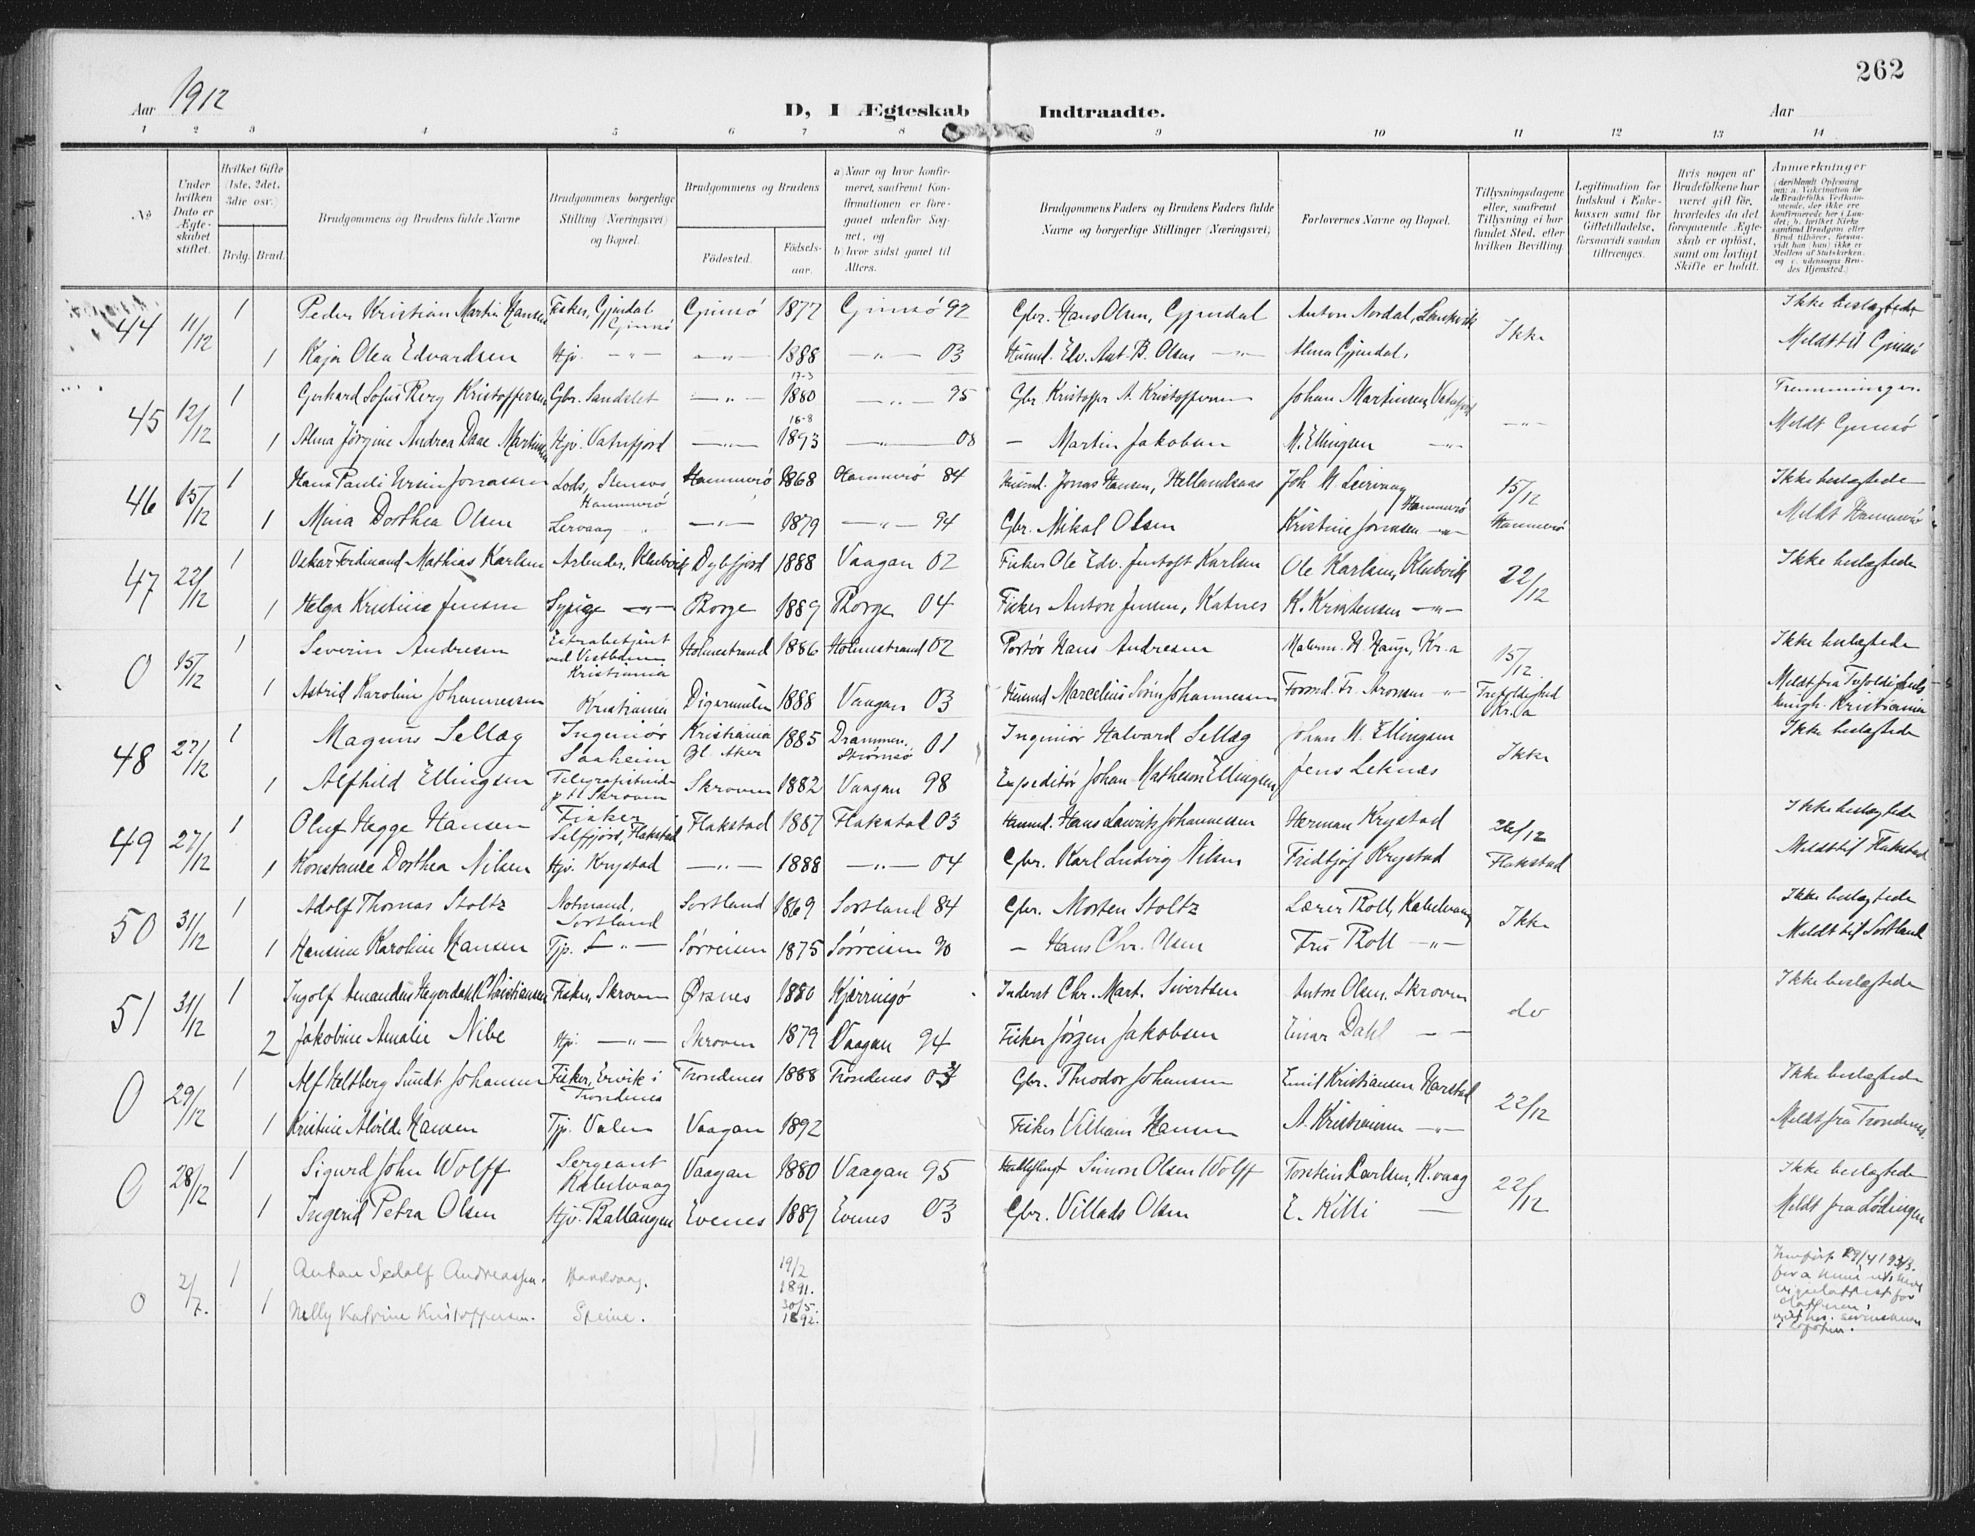 262
Aar 1912
D, I Ægteskab Indtraadte.
Aar
1 2 3 4 5 6 7 8 9 10 11 12 13 14
No
Under hvilken Dato er Ægteskabet stiftet.
Hvilket Gifte (1ste, 2det, 3die osv.)
Brdg. Brud.
Brudgommens og Brudens fulde Navne
Brudgommens borgerlige Stilling (Næringsvei) og Bopæl.
Brudgommens og Brudens
Födested.
Födselsaar.
a) Naar og hvor konfirmeret, saafremt Konfirmationen er foregaaet udenfor Sognet, og
b) hvor sidst gaaet til Alters.
Brudgommens Faders og Brudens Faders fulde Navne og borgerlige Stillinger (Næringsvei)
Forlovernes Navne og Bopæl.
Tillysningsdagene eller, saafremt Tillysning ei har fundet Sted, efter hvilken Bevilling.
Legitimation for Indskud i Enkekassen samt for Giftetilladelse, forsaavidt saadan tiltrænges.
Hvis nogen af Brudefolkene har været gift før, hvorledes da det foregaaende Ægteskab er opløst, samt om lovligt Skifte er holdt.
Anmerkninger
44 11/12 1 Peder Kristian Martin Hansen Fisker, Gjendal Gimsö Gimsö 1877 Gimsö 92 Gbr. Hans Olsen, Gjendal Anton Nordal, Ikke Ikke beslægtede
1 Kaja Olea Edvardsen Hjv. —"— —"— 1888 —"— 03 Husmd. Edv. Ant. B. Olsen —"— Alma Gjendal. Meldt til Gimsö
45 12/12 1 Gerhard Sofus Berg Kristoffersen Gbr. Sandslet —"— 17-3 1880 —"— 95 Gbr Kristoffer A. Kristoffersen Johan Martinsen, Vatnfjord —"— Fremmninger.
1 Alma Jörgine Andrea Daae Martinsen Hjv. Vatnfjord —"— 16-8 1893 —"— 08 — Martin Jakobsen M. Ellingsen —"— Meldt Gimsö
46 15/12 1 Hans Pauli Ursin Jonassen Lods, Hammerö Hammerö 1868 Hammerö 84 Husmd. Jonas Hansen, Hellandsaas Joh M Leirvaag Hammerö 15/12 Hammerö Ikke beslægtede
1 Mina Dorthea Olsen Lervaag —"— —"— 1879 —"— 94 Gbr. Mikal Olsen Kristine Jonassen —"— Meldt Hammerö
47 22/12 1 Oskar Ferdinand Mathias Karlsen Arbeider, Klubvik Dybfjord 1888 Vaagan 02 Fisker Ole Edv. Karlsen Ole Karlsen, Klubvik 22/12 Ikke beslægtede
1 Helga Kristine Jensen Sypige —"— Borge 1889 Borge 04 Fisker Anton Jensen, Katnes K. Kristensen —"—
0 15/12 1 Severin Andresen Extrabetjent ved Vestbanen Kristiania Holmestrand 1886 Holmestrand 02 Portör Hans Andresen Malerm. H. Hauge, Kr.a 15/12 Trefoldighed Kr.a Ikke beslægtede
1 Astrid Karoline Johannessen Kristiania Digermulen 1888 Vaagan 03 Husmd Marcelius Sörin Johannessen Formd. Fr. Aronsen —"— Meldt fra Trefoldigheds menigh. Kristiania
48 27/12 1 Magnus Sellæg Ingeniör Saaheim Kristiania Gl. Aker 1885 Drammen, Strömsö 01 Ingeniör Halvard Sellæg Johan M. Ellingsen Ikke Ikke beslægtede
1 Alfhild Ellingsen Telegrafistinde p.t. Skroven Skroven 1882 Vaagan 98 Expeditör Johan Matheson Ellingsen Jens Leknæs
49 27/12 1 Oluf Hegge Hansen Fisker, Selfjord, Flakstad Flakstad 1887 Flakstad 03 Husmd. Hans Lauritz Johannessen Herman Krystad 26/12 Flakstad Ikke beslægtede
1 Konstance Dorthea Nilsen Hjv. Krystad —"— 1888 —"— 04 Gbr. Karl Ludvig Nilsen Fridtjof Krystad Meldt til Flakstad
50 31/12 1 Adolf Thomas Stoltz Notmand, Sortland Sortland 1869 Sortland 84 Gbr. Morten Stoltz Lærer Boll, Kabelvaag Ikke Ikke beslægtede
1 Hansine Karoline Hansen Tjp. —"— Sörreisen 1875 Sörreisen 90 — Hans Chr. Olsen Fru Boll —"— Meldt til Sortland
51 31/12 1 Ingolf Amandus Hegerdahl Christiansen Fisker, Skroven Ørsnes 1880 Kjærringö Inderst Chr. Mart. Sivertsen Anton Olsen, Skroven do Ikke beslægtede
2 Jakobine Amalie Nibe Hjv. —"— Skroven 1879 Vaagan 94 Fisker Jörgen Jakobsen Einar Dahl — —
0 29/12 1 Alf Heltberg Sundt Johansen Fisker, Ervik i Trondenes Trondenes 1888 Trondenes 03 Gbr. Theodor Johansen Emil Kristiansen Harstad 22/12 Ikke beslægtede
1 Kristine Alvilde Hansen Tjp. Valen Vaagan 1892 Fisker Vilhelm Hansen A. Kristiansen —"— Meldt fra Trondenes.
0 28/12 1 Sigurd John Wolff Sergeant Kabelvaag Vaagan 1880 Vaagan 95 Simon Olsen Wolff Torstein Carlsen, K.vaag 22/12 Ikke beslægtede
1 Ingerid Petra Olsen Hjv. Ballangen Evenes 1889 Evenes 03 Gbr. Villads Olsen E. Killi — Meldt fra Lödingen
0 2/7. 1 Anton Sedolf Andreassen. 19/2 1891.
1 Nelly Katrine Kristoffersen. Speine. 30/5. 1892.